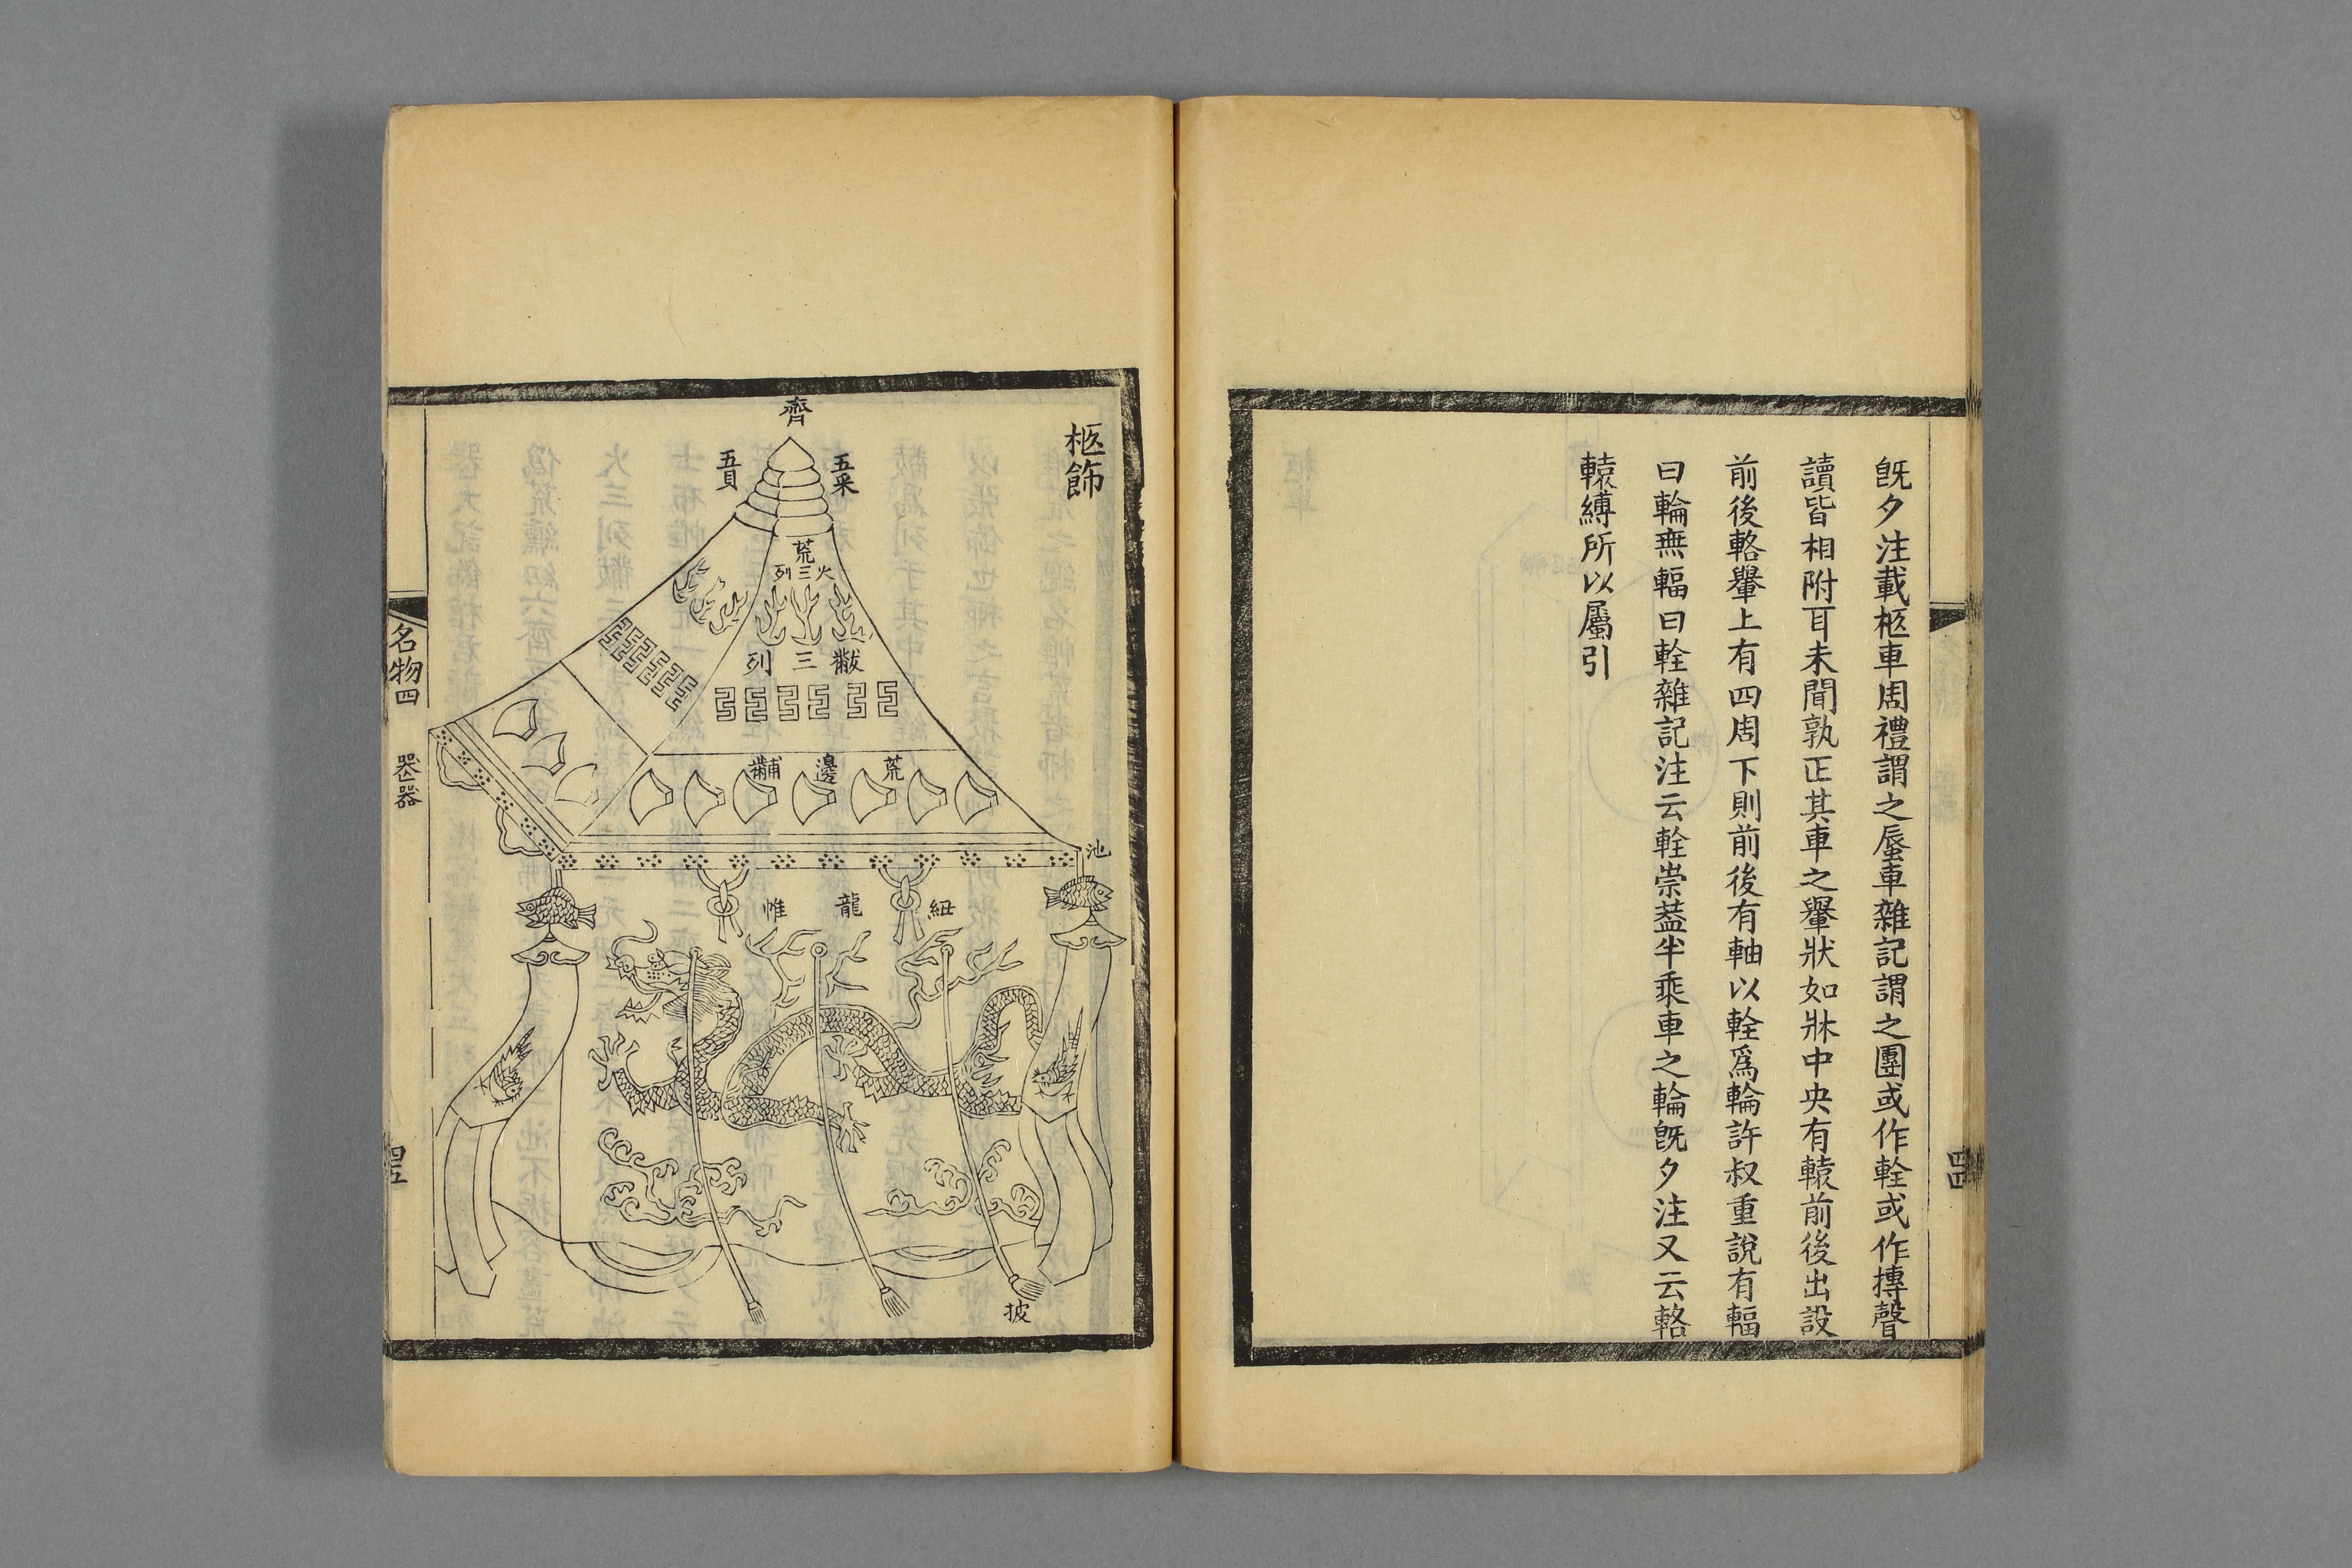 既夕注載柩車周禮謂之蜃車雜記謂之團或作輇或作摶聲
讀皆相附耳未聞孰正其車之轝狀如牀中央有轅前後出設
前後輅轝上有四周下則前後有軸以輇爲輪許叔重說有輻
曰輪無輻曰輇雜記注云輇崇蓋半乘車之輪既夕注又云輅
轅縛所以屬引
四四
柩飾
齊
五采
五貝
荒
火三列
黻三列
荒邊黼
池
紐
龍
帷
披
名物四
喪器
四五